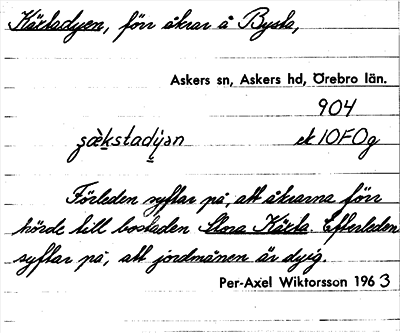 Kärtadyen, förr åkrar å Bysta,
Askers sn, Askers hd, Örebro län.
904
ek 10F0g
Förleden syftar på, att åkrarna förr
hörde till bostaden Stora Kärta. Efterleden
syftar på, att jordmånen är dyig.
Per-Axel Wiktorsson 1963